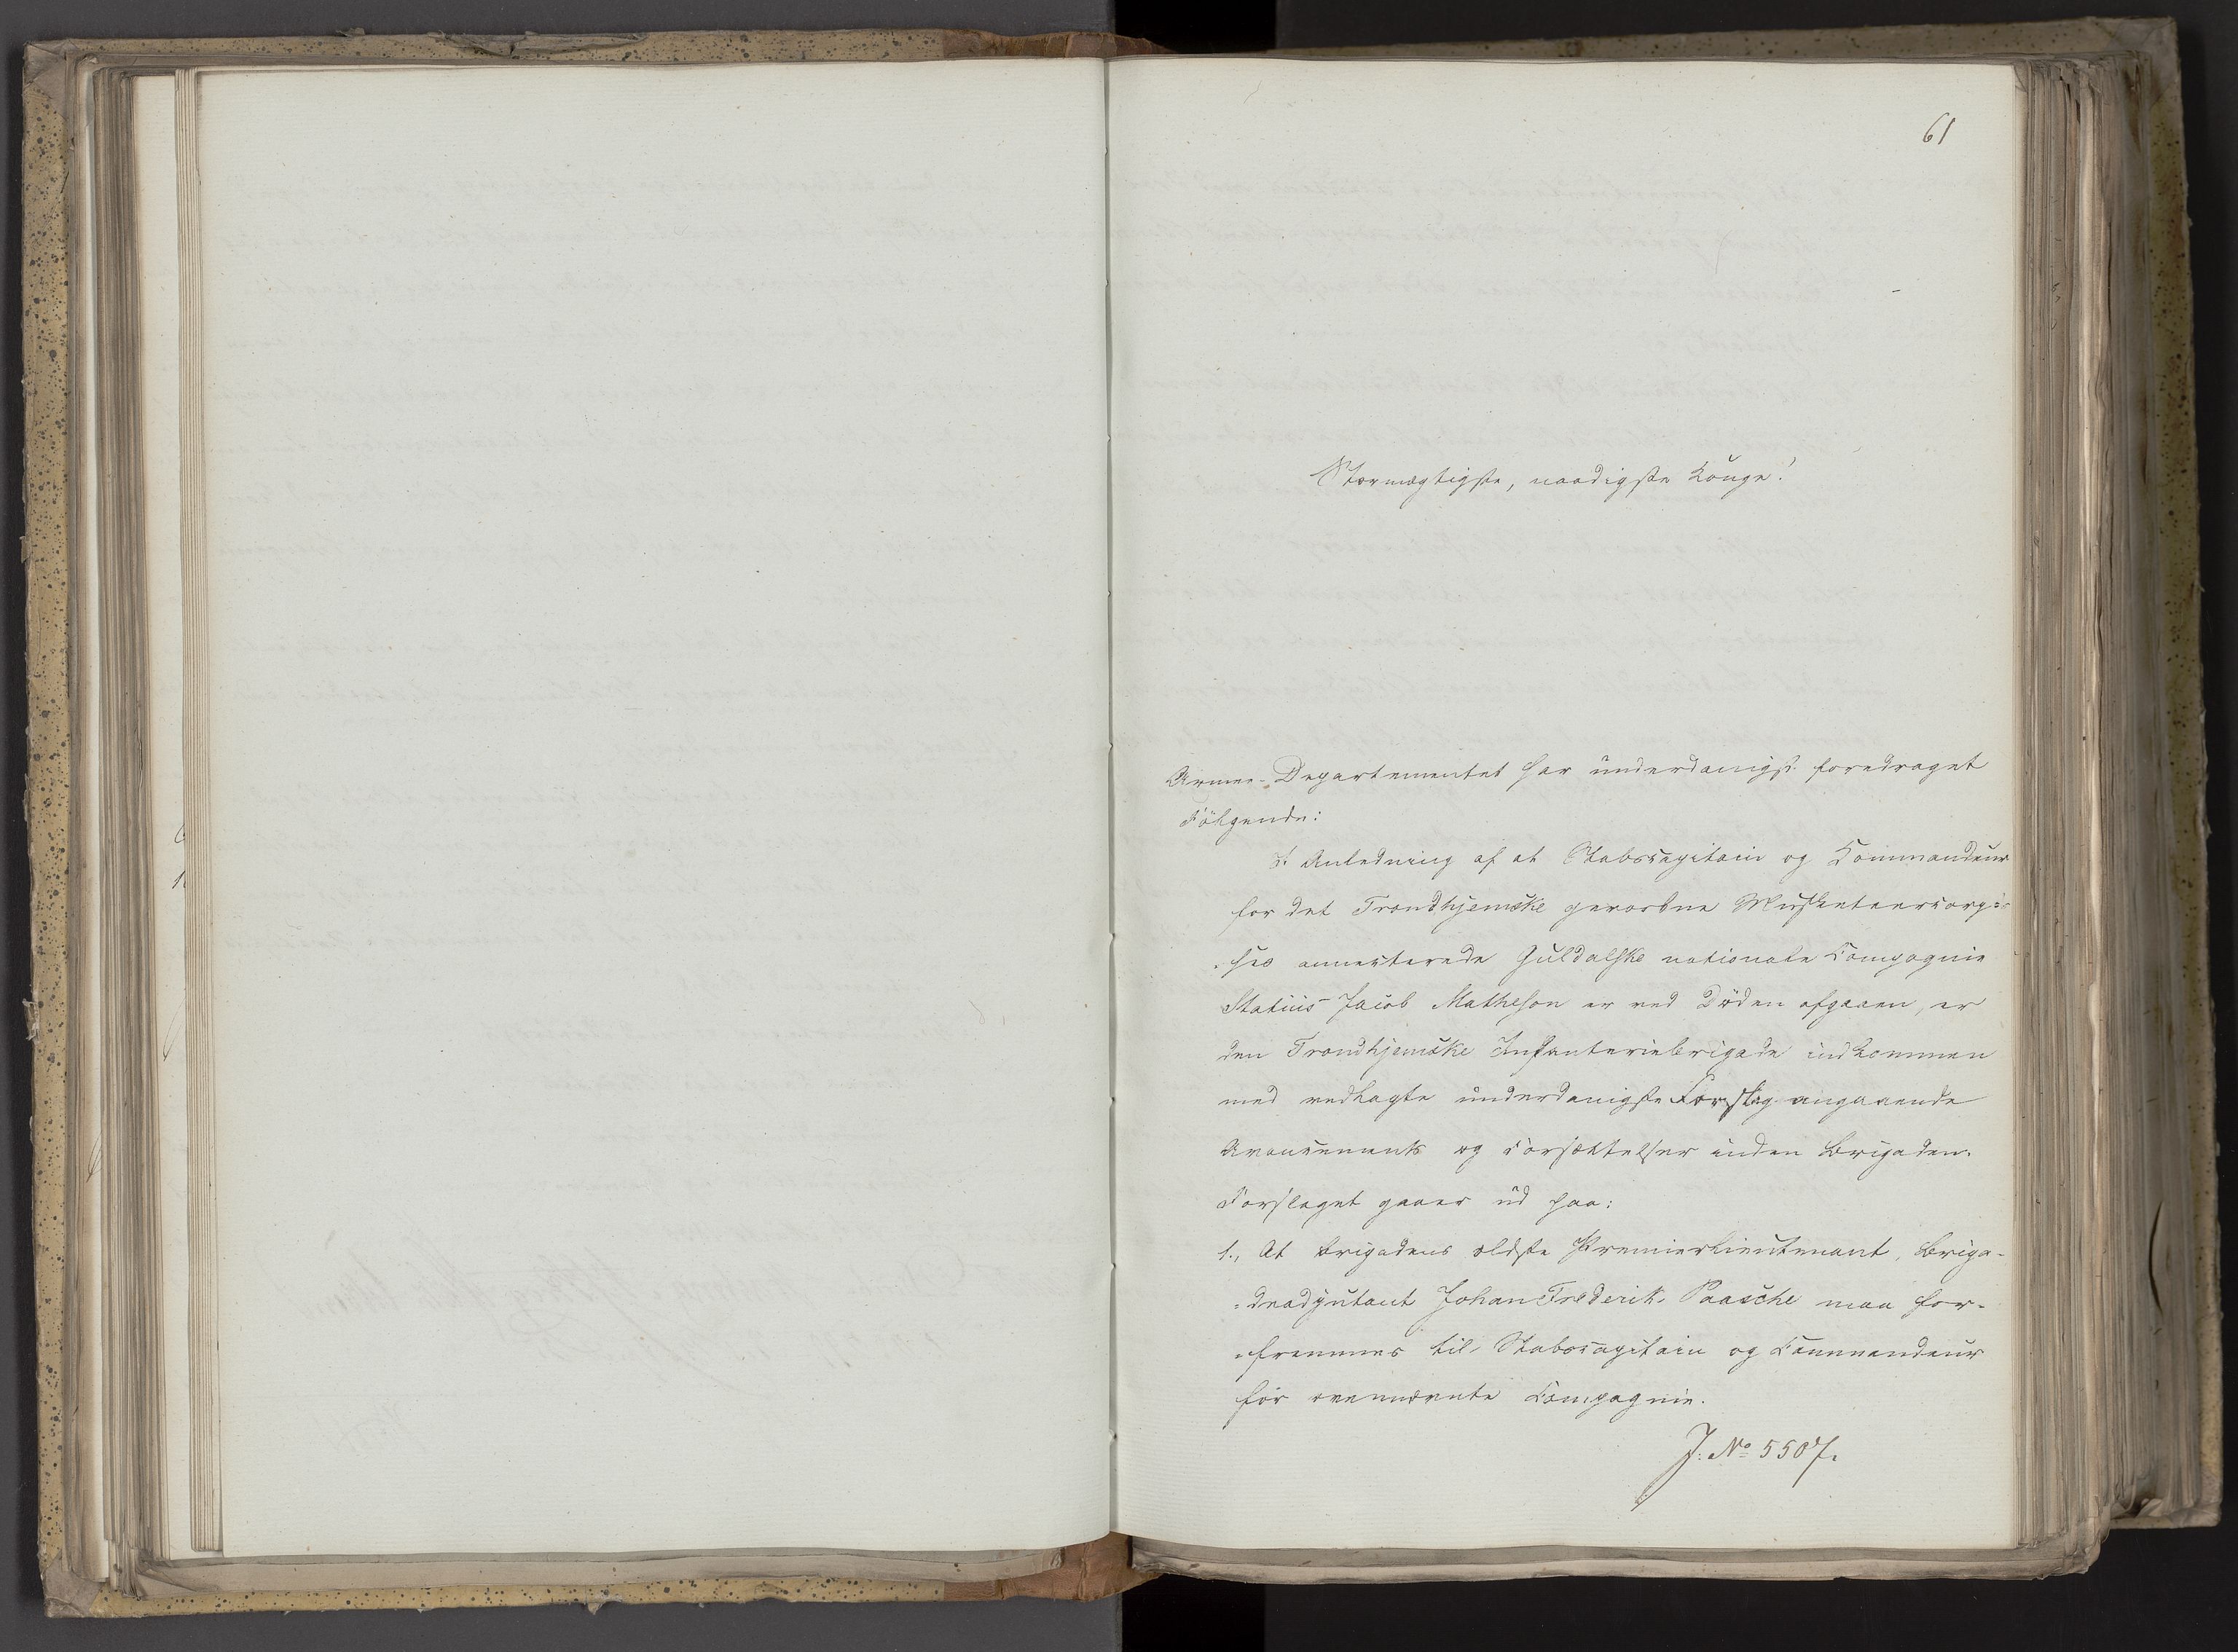 61
Stormægtigste, naadigste Konge!
Armee-Departementet har underdanigst foredraget
Følgende:
I Anledning af at Stabscapitain og Commandeur
for det Trondhjemske gevorbne Musketeercorp-
-ses annecterede Guldalske nationale Compagnie
Statius Jacob Matheson er ved Døden afgaaen, er
den Trondhjemske Infanteriebrigade indkommen
med vedlagte underdanigste Forslag angaaende
Avancements og Forsættelser inden Brigaden.
Forslaget gaaer ud paa:
1., At Brigadens ældste Premierlieutenant, Briga-
-deadjutant Johan Frederik Paasche maa for-
-fremmes til Stabscapitain og Commandeur
for ovennævnte Compagnie.
J: No 5507.